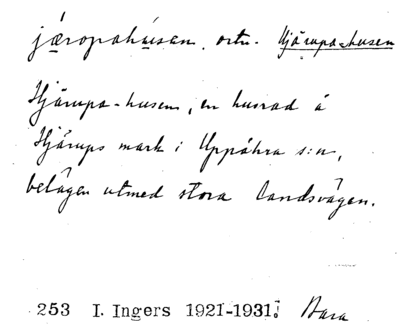 jæropahúsen, ortn. Hjärupa-husen
Hjärupa-husen, en husrad å
Hjärups mark i Uppåkra s:n,
belägen utmed stora landsvägen.
253 I. Ingers 1921-1931. Bara